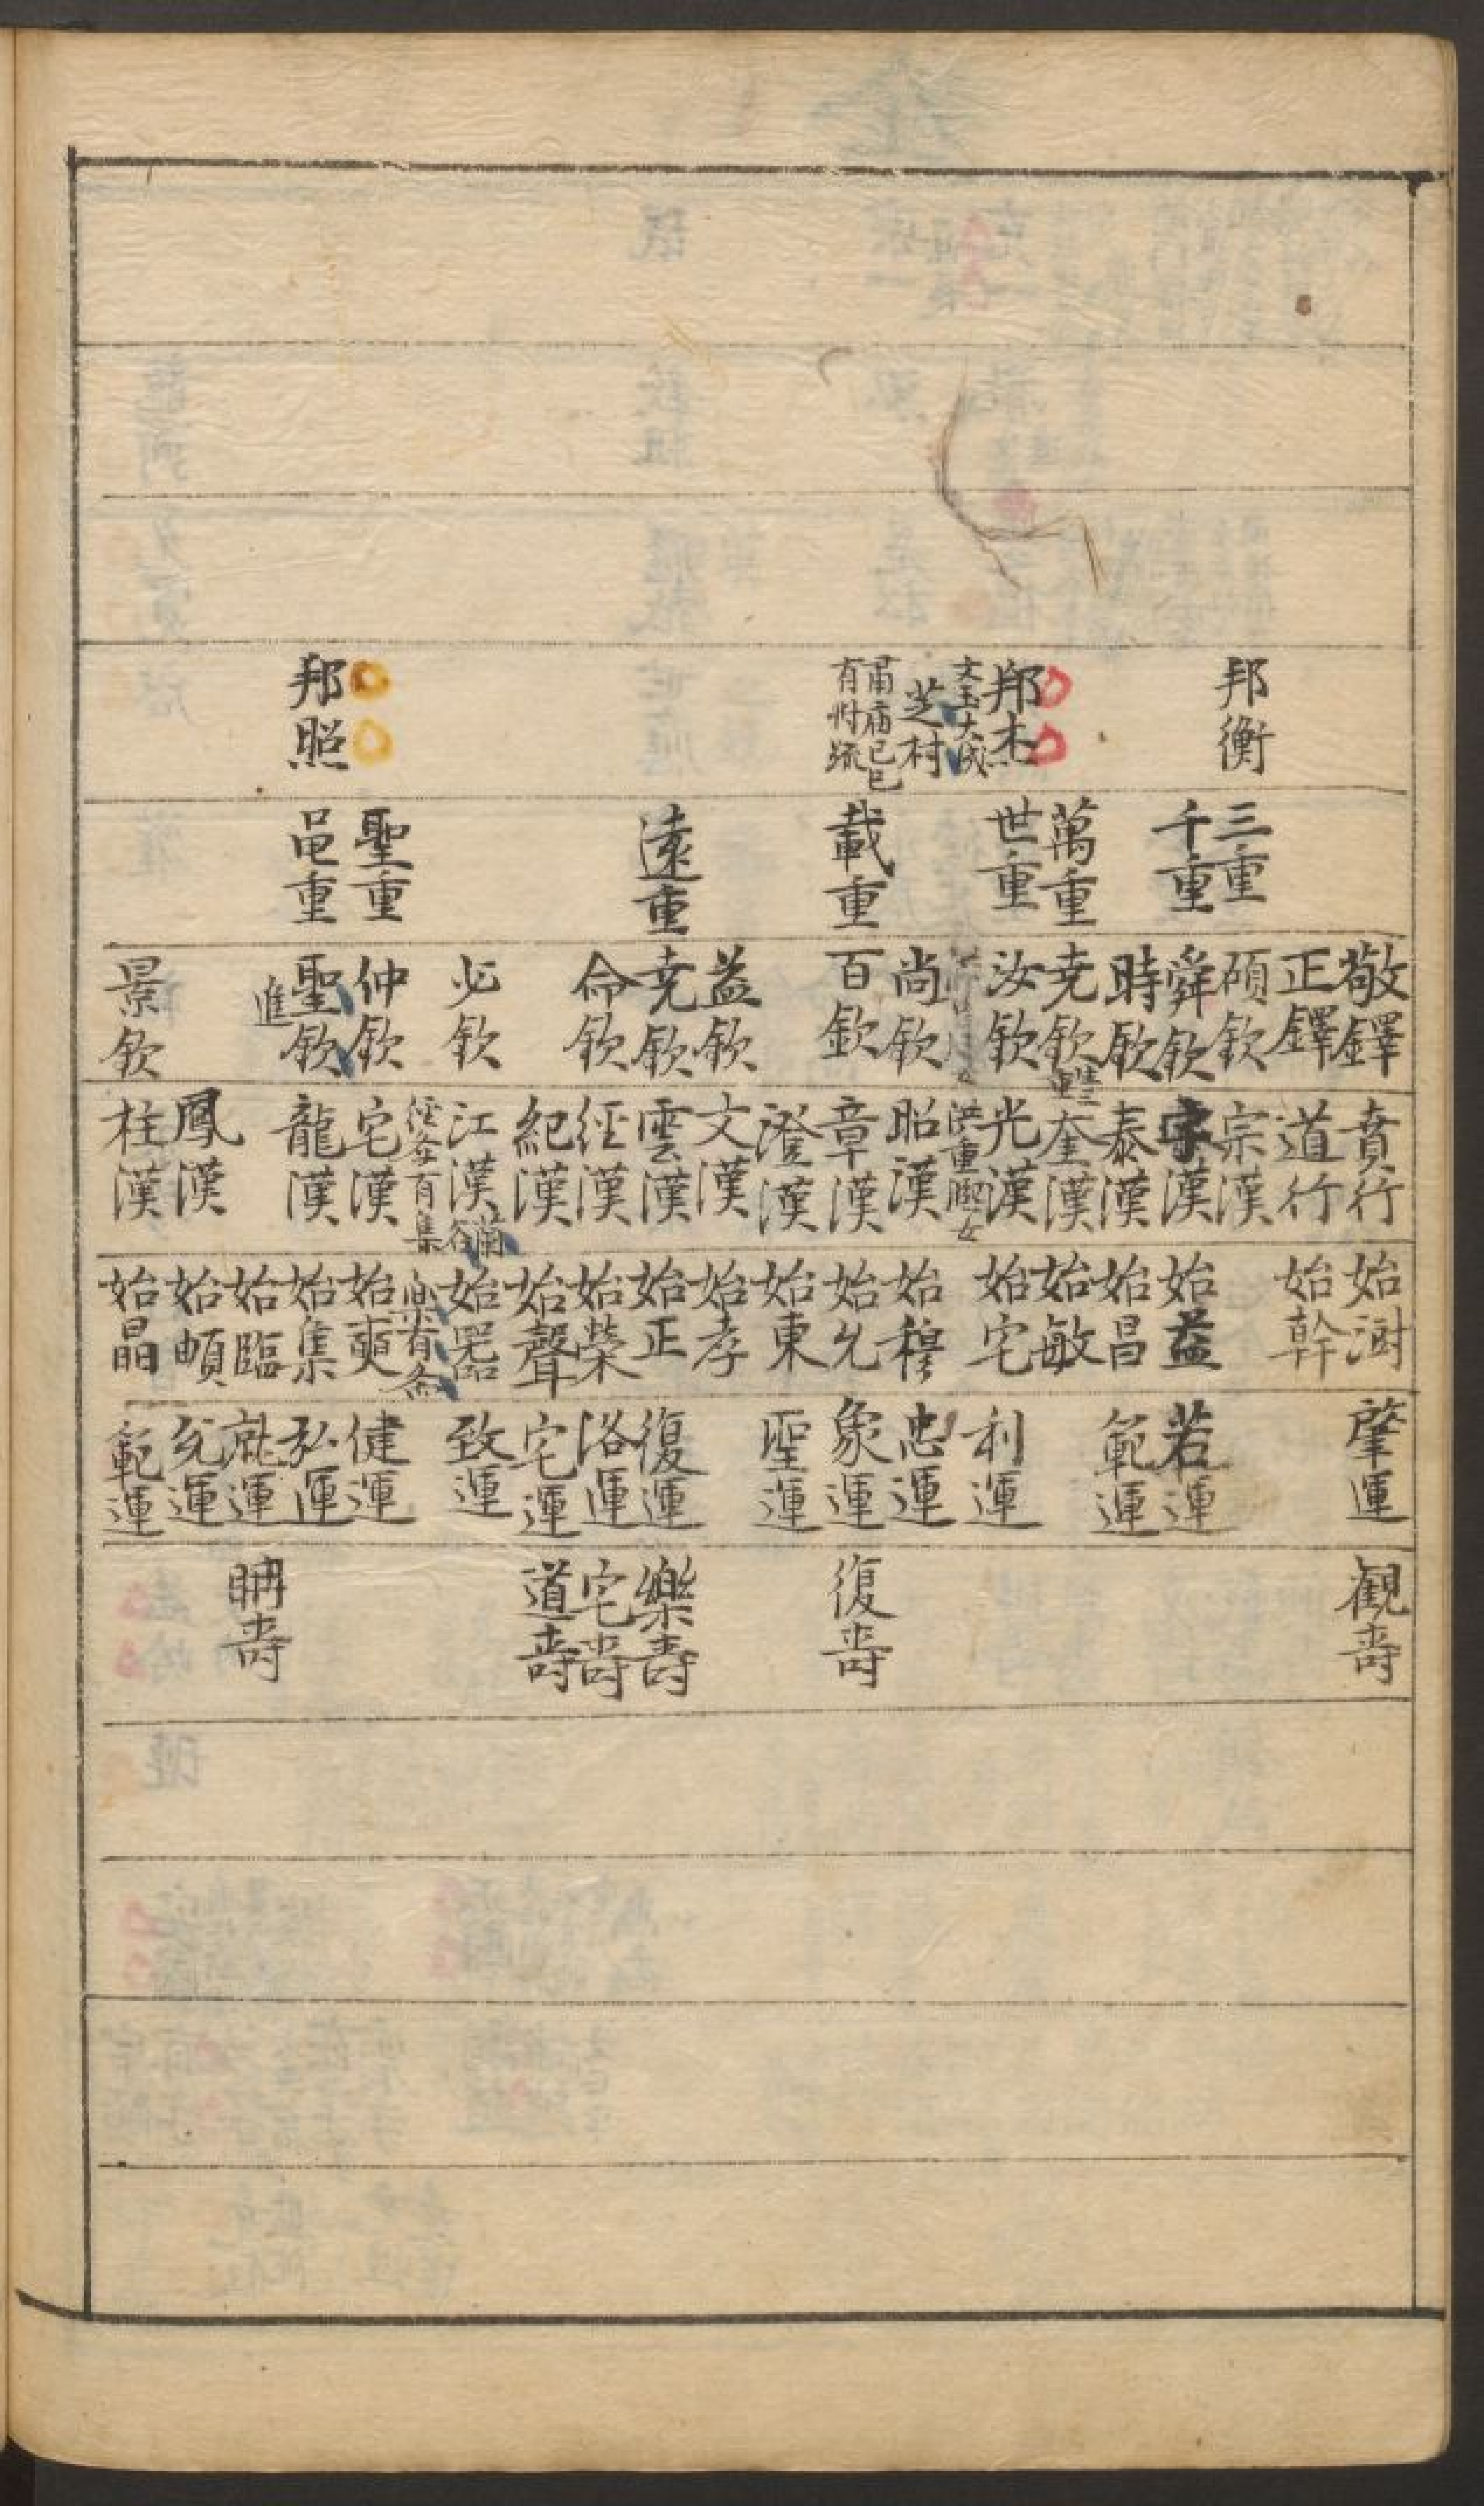 邦衡
邦杰
芝村
有時疏
邦照
三重
千重
萬重
世重
載重
遠重
聖重
邑重
敬鐸
正鐸
碩欽
舜欽
時欽
堯欽
汝欽
尚欽
百欽
益欽
堯欽
命欽
必欽
仲欽
聖欽
進
景欽
賁行
道行
宗漢
漢
泰漢
奎漢
光漢
昭漢
章漢
澄漢
文漢
雲漢
經漢
紀漢
江漢
蘭谷
宅漢
龍漢
鳳漢
柱漢
始澍
始幹
始益
始昌
始敏
始宅
始穆
始允
始東
始孝
始正
始榮
始聲
始器
始奭
始集
始臨
始
始晶
肇運
若運
範運
利運
忠運
象運
聖運
復運
洛運
宅運
致運
健運
弘運
運
允運
範運
觀壽
復壽
樂壽
宅壽
道壽
壽